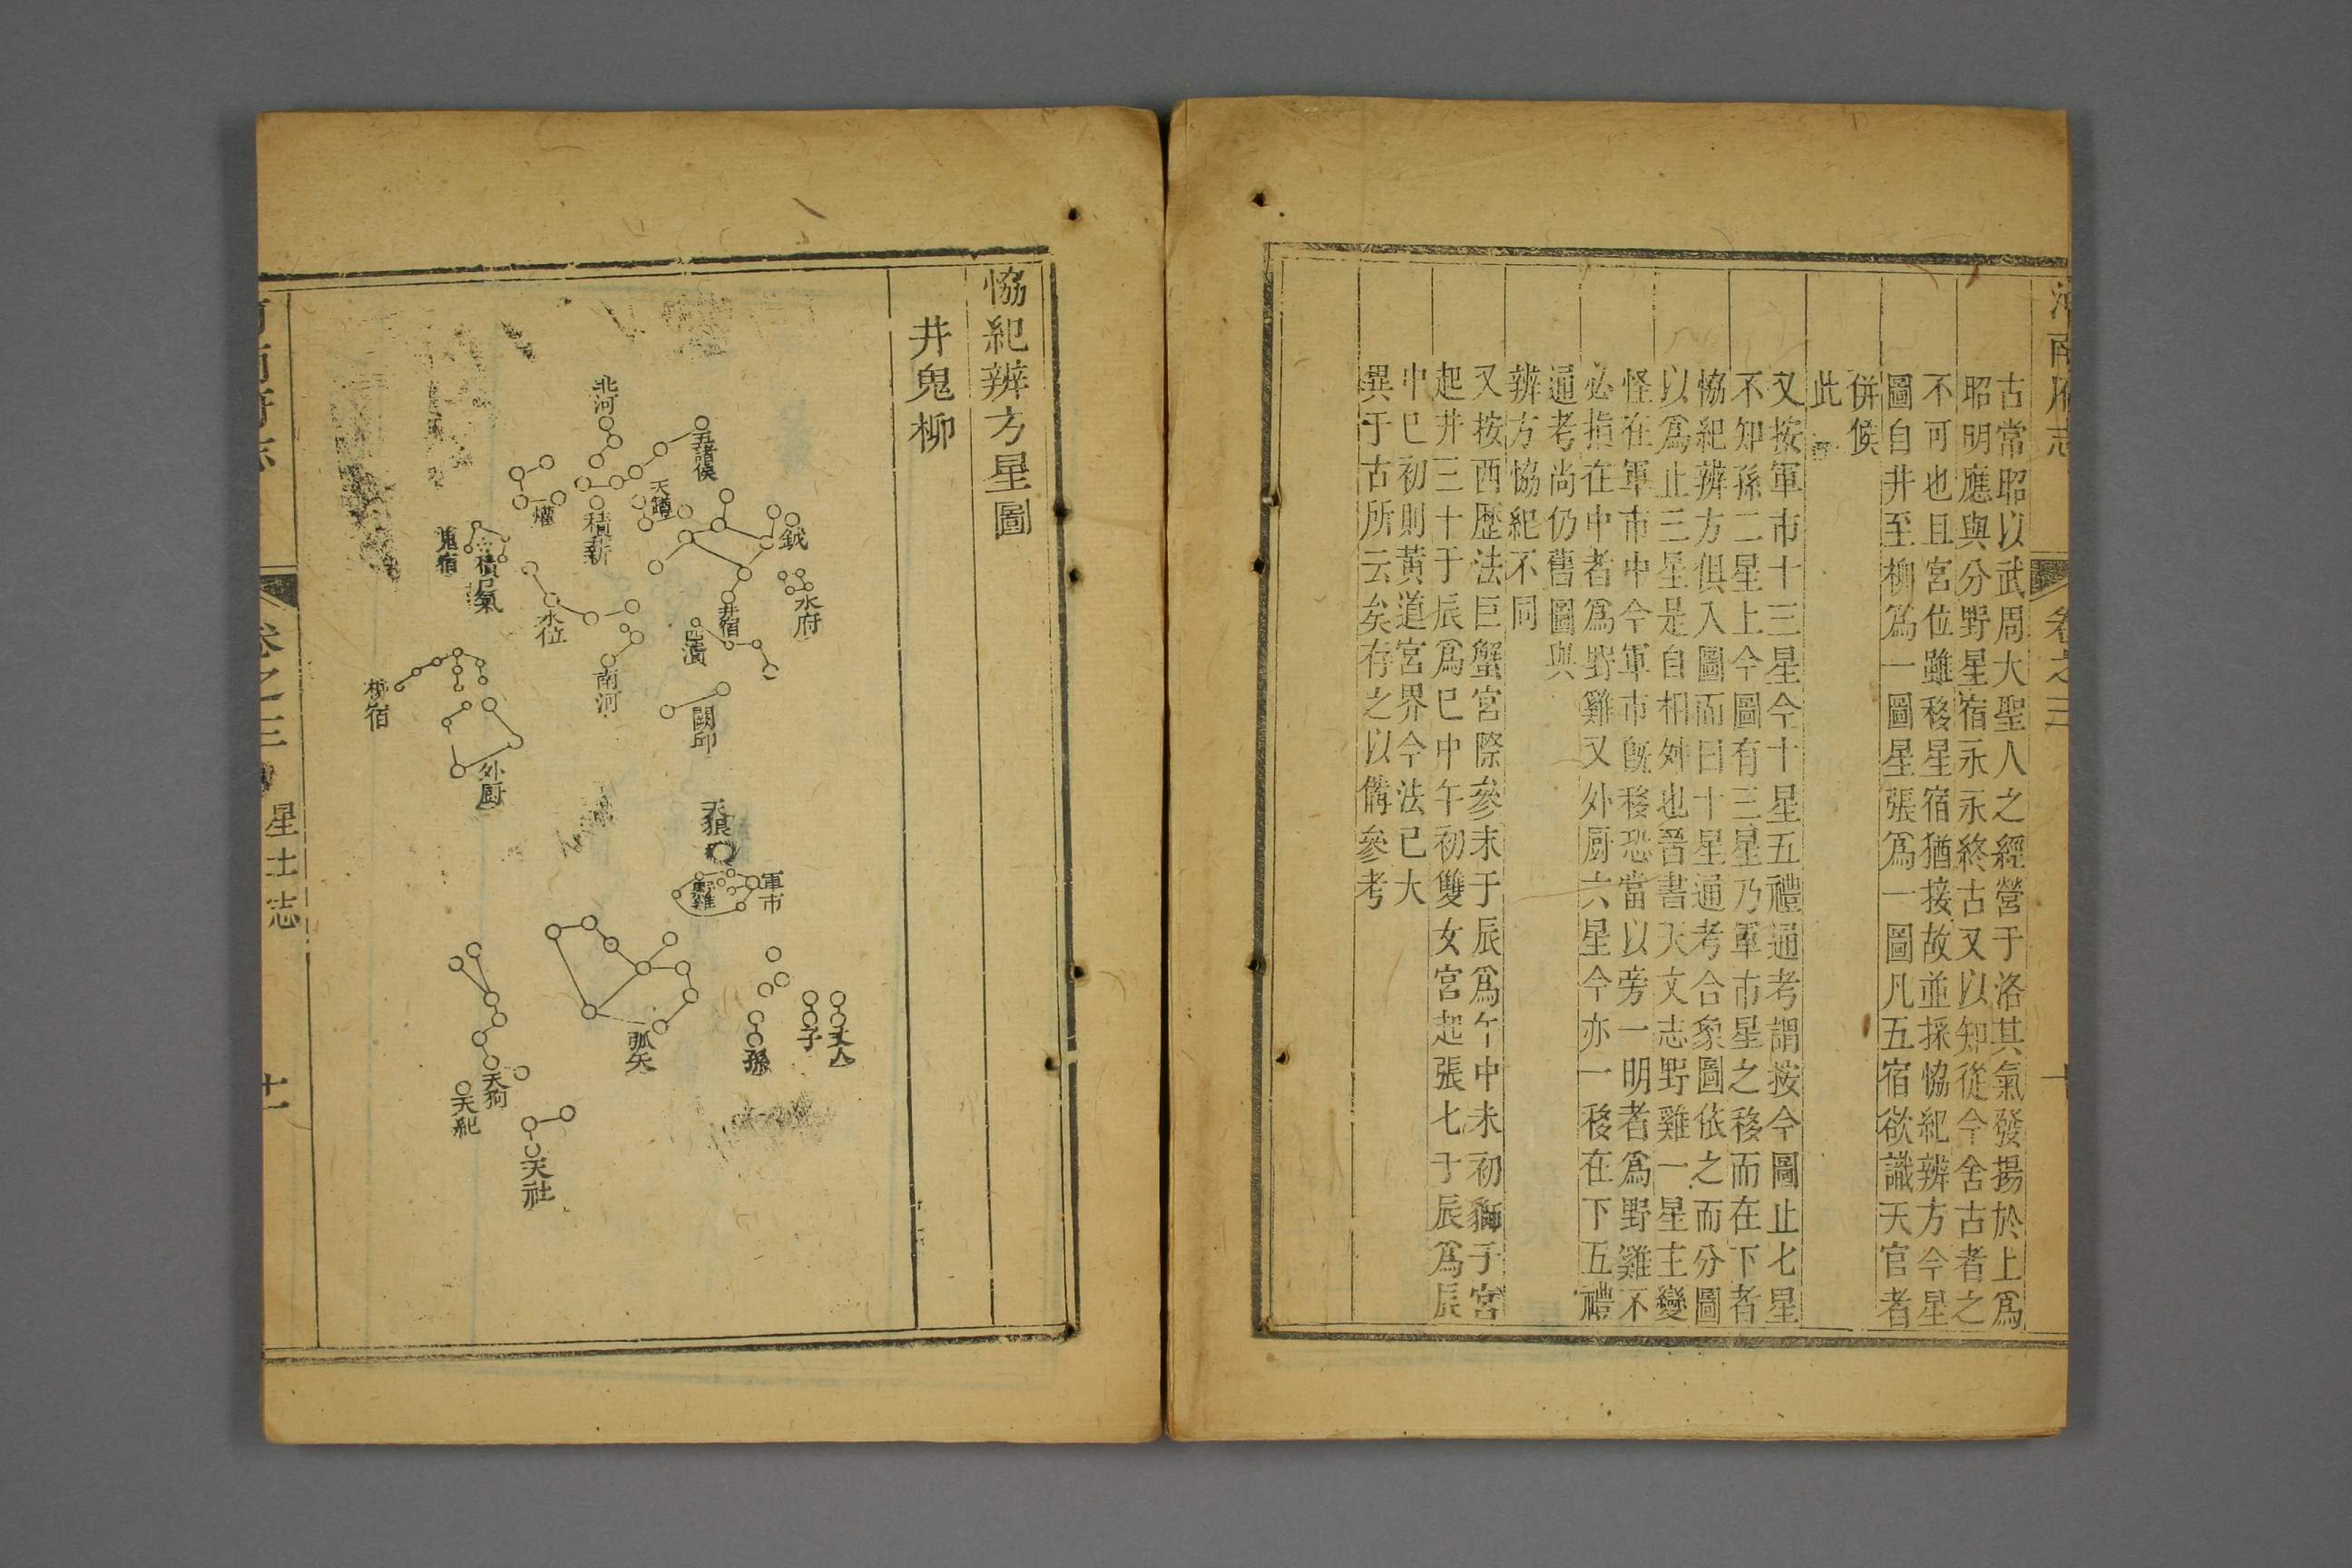 河南府志
卷之三
十
古常昭以武周大聖人之經營于洛其氣發揚於上爲
昭明應與分野星宿永永終古又以知從今舍古者之
不可也且宮位雖移星宿猶接故並採恊紀辨方今星
圖自井至柳爲一圖星張爲一圖凡五宿欲識天官者
併候
此
又按軍市十三星今十星五禮通考謂按今圖止七星
不知孫二星上今圖有三星乃軍市星之移而在下者
恊紀辨方俱入圖而曰十星通考合象圖依之而分圖
以爲止三星是自相舛也晋書天文志野雞一星主變
怪在軍市中今軍市旣移恐當以旁一明者爲野雞不
必指在中者爲野雞又外厨六星今亦一移在下五禮
通考尚仍舊圖與
辨方恊紀不同
又按西歷法巨蟹宮際參末于辰爲午中未初獅子宮
起井三十于辰爲巳中午初雙女宮起張七于辰爲辰
中巳初則黃道宮界今法已大
異于古所云矣存之以備參考
恊紀辨方星圖
井鬼柳
北河
五諸侯
天罇
爟
積薪
鉞
鬼宿
積尸氣
水府
水位
井宿
四瀆
南河
柳宿
闕邱
外厨
天狼
軍市
野雞
弧矢
孫
子
丈人
天狗
天紀
天社
河南府志
卷之三
星土志
十一